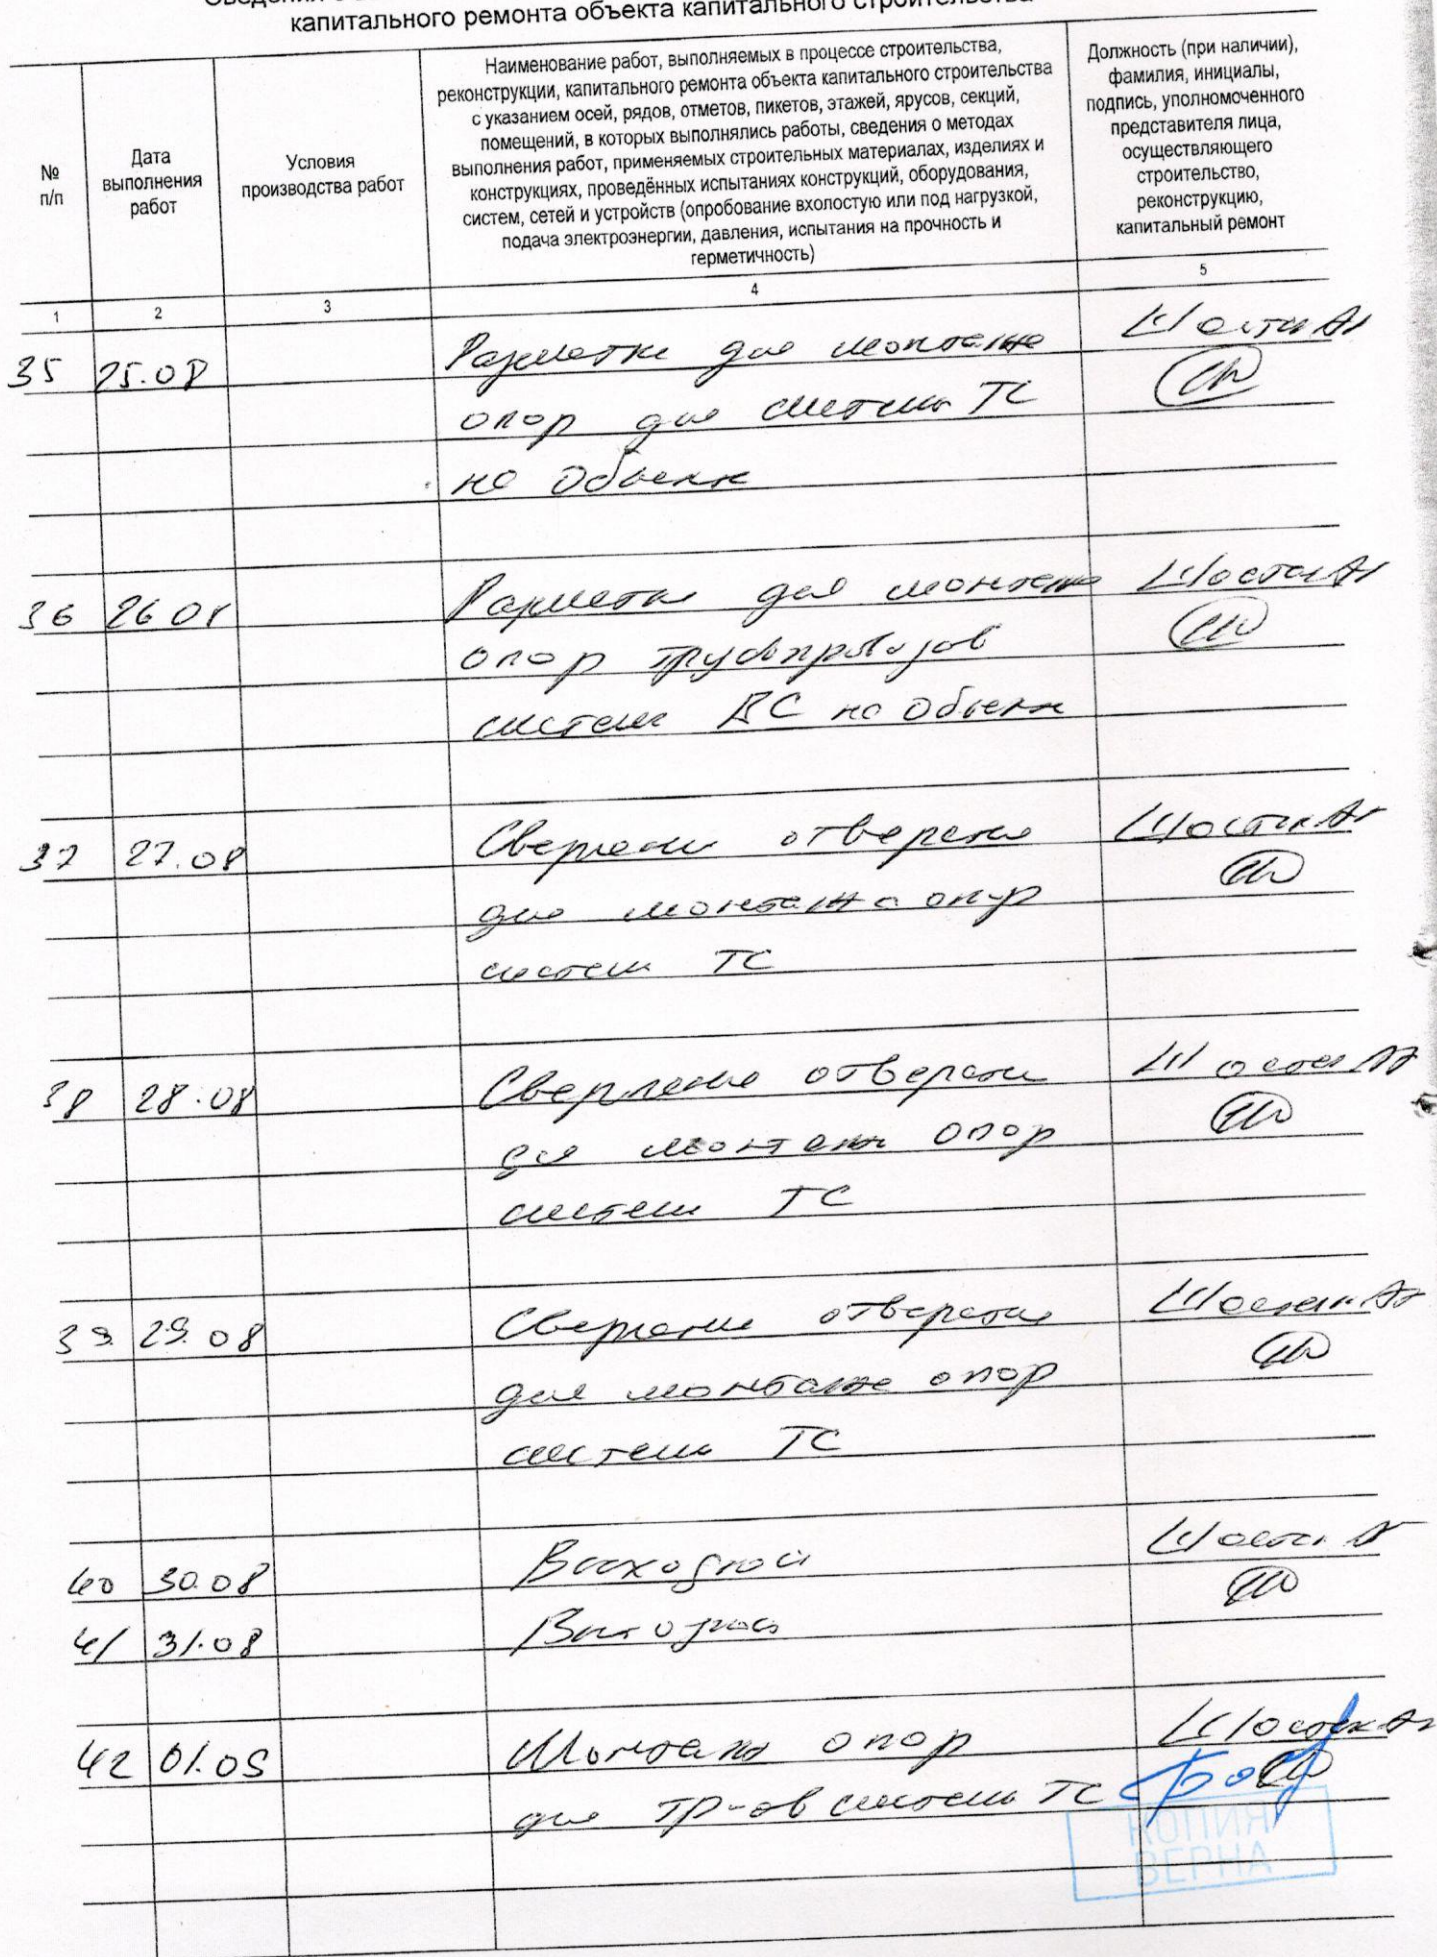 капитального ремонта объекта капитального строительства
№ п/п
Дата выполнения работ
Условия производства работ
Наименование работ, выполняемых в процессе строительства,
реконструкции, капитального ремонта объекта капитального строительства
с указанием осей, рядов, отметов, пикетов, этажей, ярусов, секций,
помещений, в которых выполнялись работы, сведения о методах
выполнения работ, применяемых строительных материалах, изделиях и
конструкциях, проведённых испытаниях конструкций, оборудования,
систем, сетей и устройств (опробование вхолостую или под нагрузкой,
подача электроэнергии, давления, испытания на прочность и
герметичность)
Должность (при наличии),
фамилия, инициалы,
подпись, уполномоченного
представителя лица,
осуществляющего
строительство,
реконструкцию,
капитальный ремонт
1 2 3 4 5
35 25.08 Разметка для монтажа
опор для системы ТС
на объекте
36 26.08 Разметка для монтажа
опор трубопроводов
системы ВС на объекте
37 27.08 Сверление отверстий
для монтажа опор
системы ТС
38 28.08 Сверление отверстий
для монтажа опор
системы ТС
39 29.08 Сверление отверстий
для монтажа опор
системы ТС
40 30.08 Выходной
41 31.08 Выходной
42 01.09 Монтаж опор
для тр-ов системы ТС
КОПИЯ
ВЕРНА